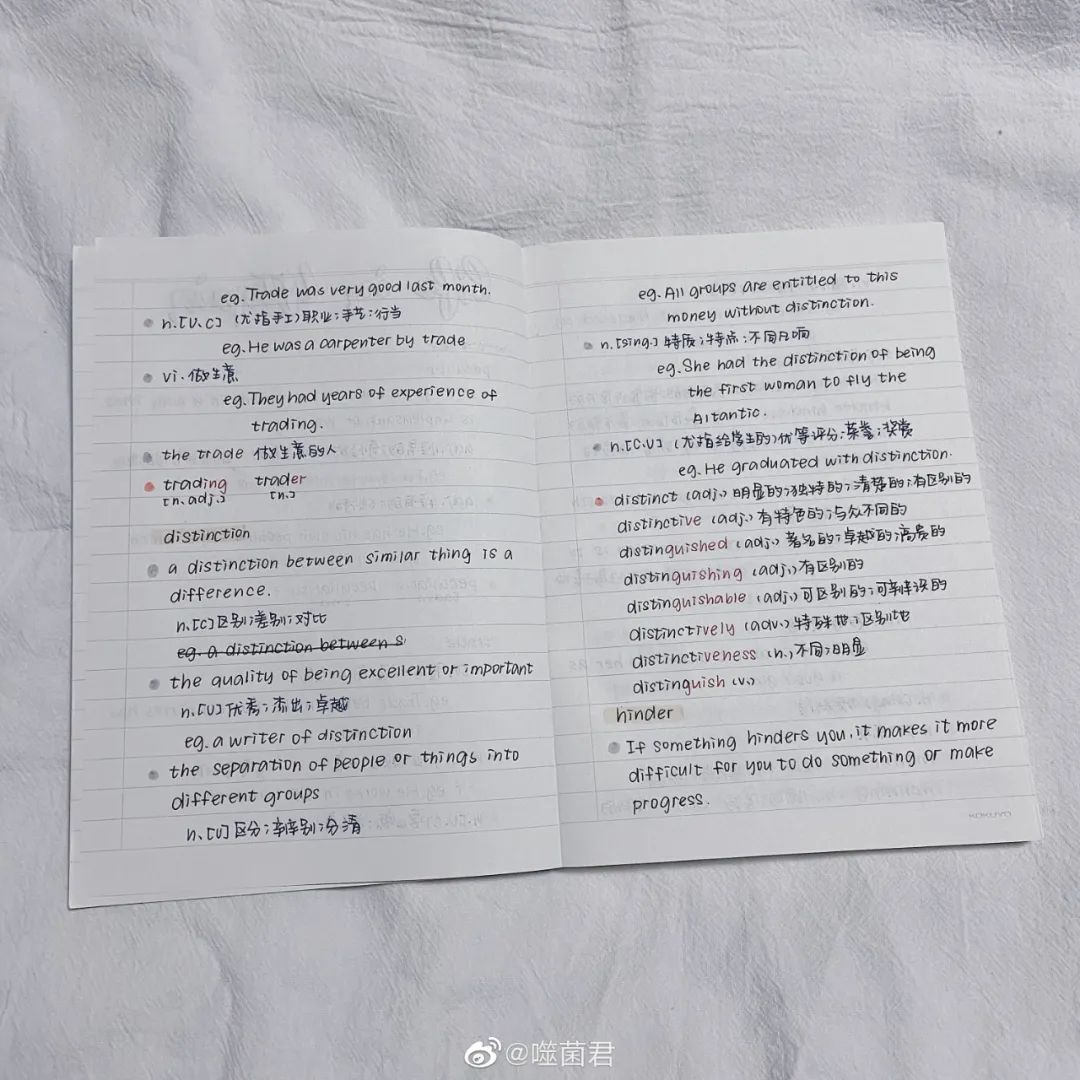 eg. Trade was very good last month.
n.[U,C] (尤指手工)职业;手艺;行当
eg. He was a carpenter by trade
vi. 做生意
eg. They had years of experience of
trading.
the trade 做生意的人
trading trader
[n. adj.] [n.]
distinction
a distinction between similar thing is a
difference.
n.[C]区别;差别;对比
eg. a distinction between s
the quality of being excellent or important
n.[U]优秀;杰出;卓越
eg. a writer of distinction
the separation of people or things into
different groups
n.[U]区分;辨别;分清
eg. All groups are entitled to this
money without distinction.
n.[sing.] 特质;特点;不同凡响
eg. She had the distinction of being
the first woman to fly the
Altantic.
n.[C,U] (尤指给学生的)优等评分;荣誉;奖赏
eg. He graduated with distinction.
distinct (adj.) 明显的;独特的;清楚的;有区别的
distinctive (adj.) 有特色的;与众不同的
distinguished (adj.) 著名的;卓越的;高贵的
distinguishing (adj.) 有区别的
distinguishable (adj.) 可区别的;可辨识的
distinctively (adv.) 特殊地;区别地
distinctiveness (n.) 不同;明显
distinguish (v.)
hinder
If something hinders you, it makes it more
difficult for you to do something or make
progress.
KOKUYO
@噬菌君